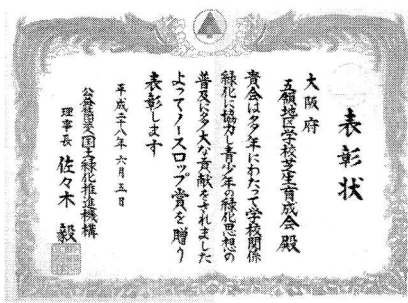 表彰状
大阪府
五領地区学校芝生育成会殿
貴会は多年にわたって学校関係
緑化に協力し青少年の緑化思想の
普及に多大な貢献をされました
よってノースロップ賞を贈り
表彰します
平成二十八年六月五日
公益社団法人国土緑化推進機構
理事長 佐々木 毅